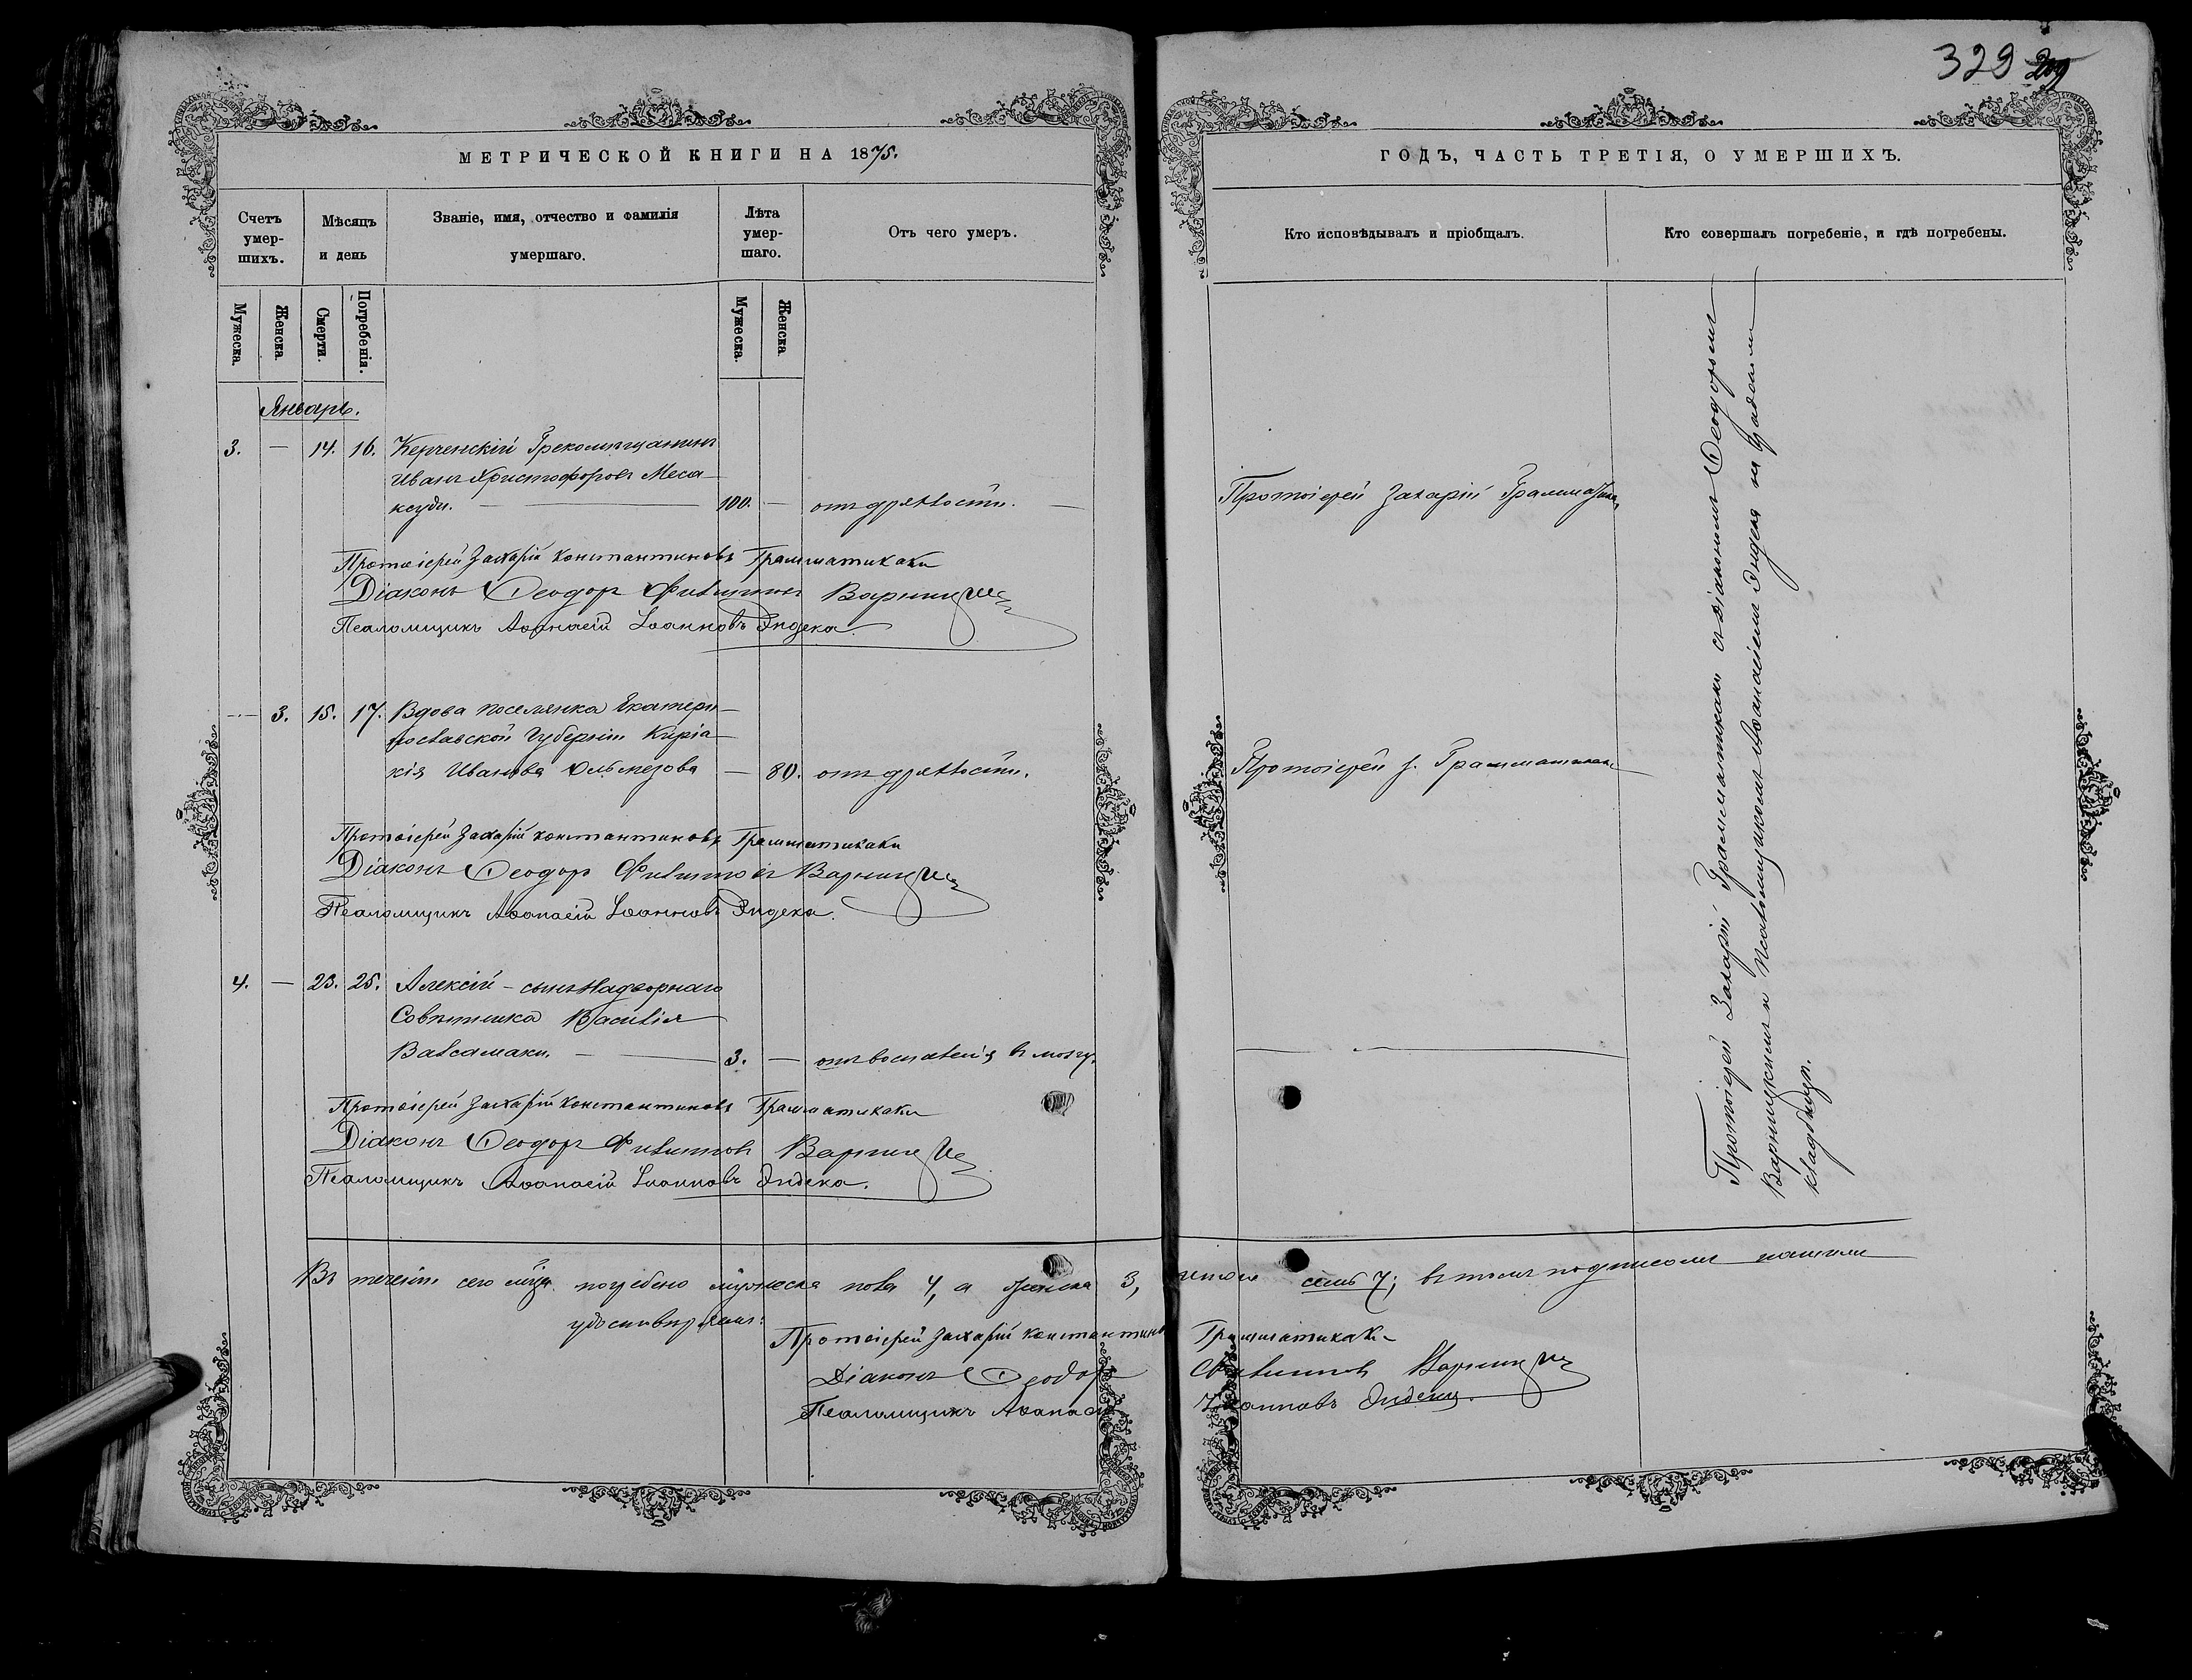 329 209
МЕТРИЧЕСКОЙ КНИГИ НА 1875.
Счетъ умер-шихъ.
Мѣсяцъ и день
Званіе, имя, отчество и фамилія умершаго.
Лѣта умер-шаго.
Отъ чего умеръ.
Мужеска.
Женска
Смерти.
Погребенія.
Мужеска.
Женска
Январь.
3. — 14. 16. Керченскій Грекомѣщанинъ
Иванъ Христофоровъ Меса-
ксуди. — 100. — отъ дряхлости. —
Протоіерей Захарій Константиновъ Грамматикаки
Діаконъ Ѳеодоръ Филипповъ Варницкій
Псаломщикъ Аѳанасій Іоанновъ Эндека.
— 3. 15. 17. Вдова поселянка Екатери-
нославской Губерніи Киріа-
кія Иванова — 80. отъ дряхлости.
Протоіерей Захарій Константиновъ Грамматикаки
Діаконъ Ѳеодоръ Филипповъ Варницкій
Псаломщикъ Аѳанасій Іоанновъ Эндека.
4. — 23. 25. Алексій – сынъ Надворнаго
Совѣтника Василія
Валсамаки. — 3. — отъ воспаленія въ мозгу.
Протоіерей Захарій Константиновъ Грамматикаки
Діаконъ Ѳеодоръ Филипповъ Варницкій
Псаломщикъ Аѳанасій Іоанновъ Эндека.
Въ теченіи сего мѣсяца погребено мужеска пола 4, а женска 3, итого семь 7; въ томъ подписомъ нашимъ
удостовѣряемъ:
Протоіерей Захарій Константиновъ Грамматикаки
Діаконъ Ѳеодоръ Филипповъ Варницкій
Псаломщикъ Аѳанасій Іоанновъ Эндека.
ГОДЪ, ЧАСТЬ ТРЕТІЯ, О УМЕРШИХЪ.
Кто исповѣдывалъ и пріобщалъ.
Кто совершалъ погребеніе, и гдѣ погребены.
Протоіерей Захарій Грамматикаки
Протоіерей З. Грамматикаки
Протоіерей Захарій Грамматикаки съ діакономъ Ѳеодоромъ
Варницкимъ и Псаломщикомъ Аѳанасіемъ Эндека на градскомъ
кладбищѣ.